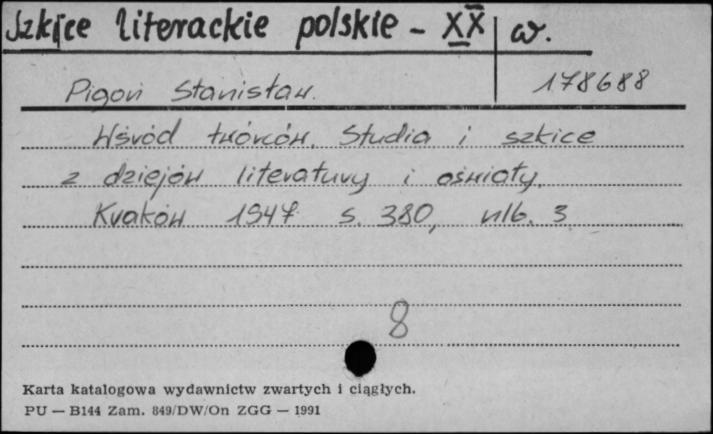 Szkice literackie polskie - XX w.
Pigoń Stanisław. 178688
Wśród twórców. Studia i szkice
z dziejów literatury i oświaty.
Kraków 1947 s. 380, nlb. 3
8
Karta katalogowa wydawnictw zwartych i ciągłych.
PU — B144 Zam. 849/DW/On ZGG — 1991